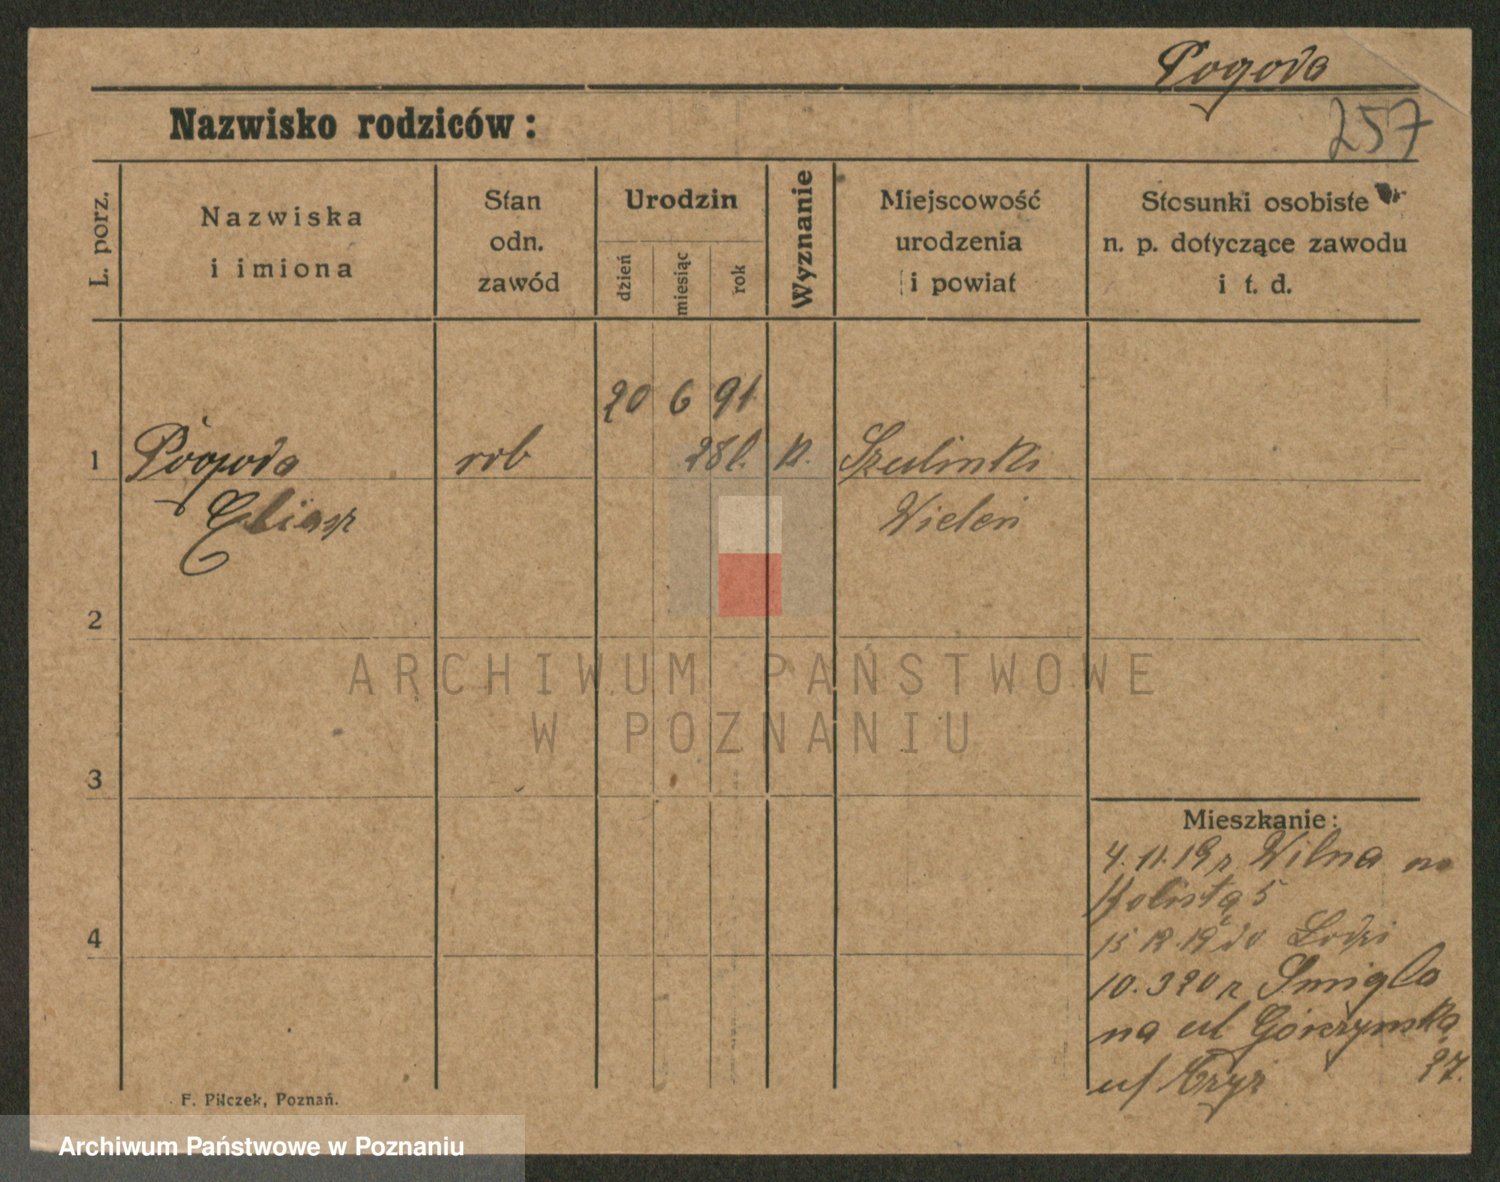 Pogoda
257
Nazwisko rodziców:
L. porz.
Nazwiska
i imiona
Stan
odn.
zawód
Urodzin
dzień
miesiąc
rok
Wyznanie
Miejscowość
urodzenia
i powiat
Stosunki osobiste
n. p. dotyczące zawodu
i t. d.
20 6 91
1 Pogoda rob 28 l. k. Szulinki
Eliasz Wieleń
2
3
4
Mieszkanie:
4. 11. 19 r Wilna na
5
15 12. 19 do Łodzi
10. 3 20 r Smigla
na ul Górczynska
27.
F. Pilczek, Poznań.
ARCHIWUM PAŃSTWOWE
W POZNANIU
Archiwum Państwowe w Poznaniu